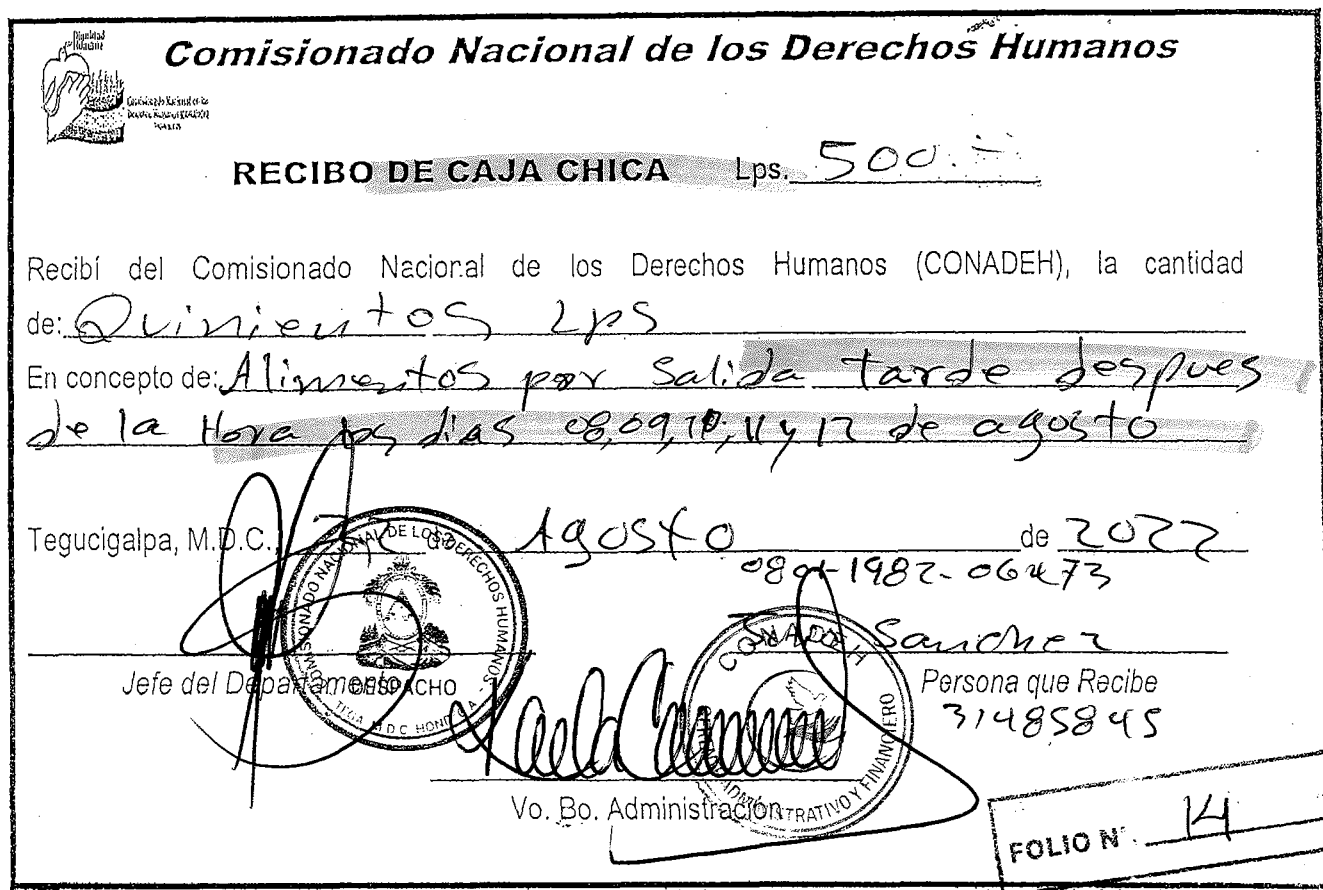 Dignidad Humana
Comisionado Nacional de los Derechos Humanos
RECIBO DE CAJA CHICA Lps. 500.-
Recibí del Comisionado Nacional de los Derechos Humanos (CONADEH), la cantidad
de: Quinientos Lps
En concepto de: Alimentos por Salida tarde despues
de la Hora los dias 08,09,10,11 y 12 de agosto
Tegucigalpa, M.D.C. Agosto de 2022
Sanchez
Jefe del Departamento
Persona que Recibe
31485845
COMISIONADO NACIONAL DE LOS DERECHOS HUMANOS
DESPACHO
CONADEH
ADMINISTRATIVO Y FINANCIERO
Vo. Bo. Administración
FOLIO N°. 14